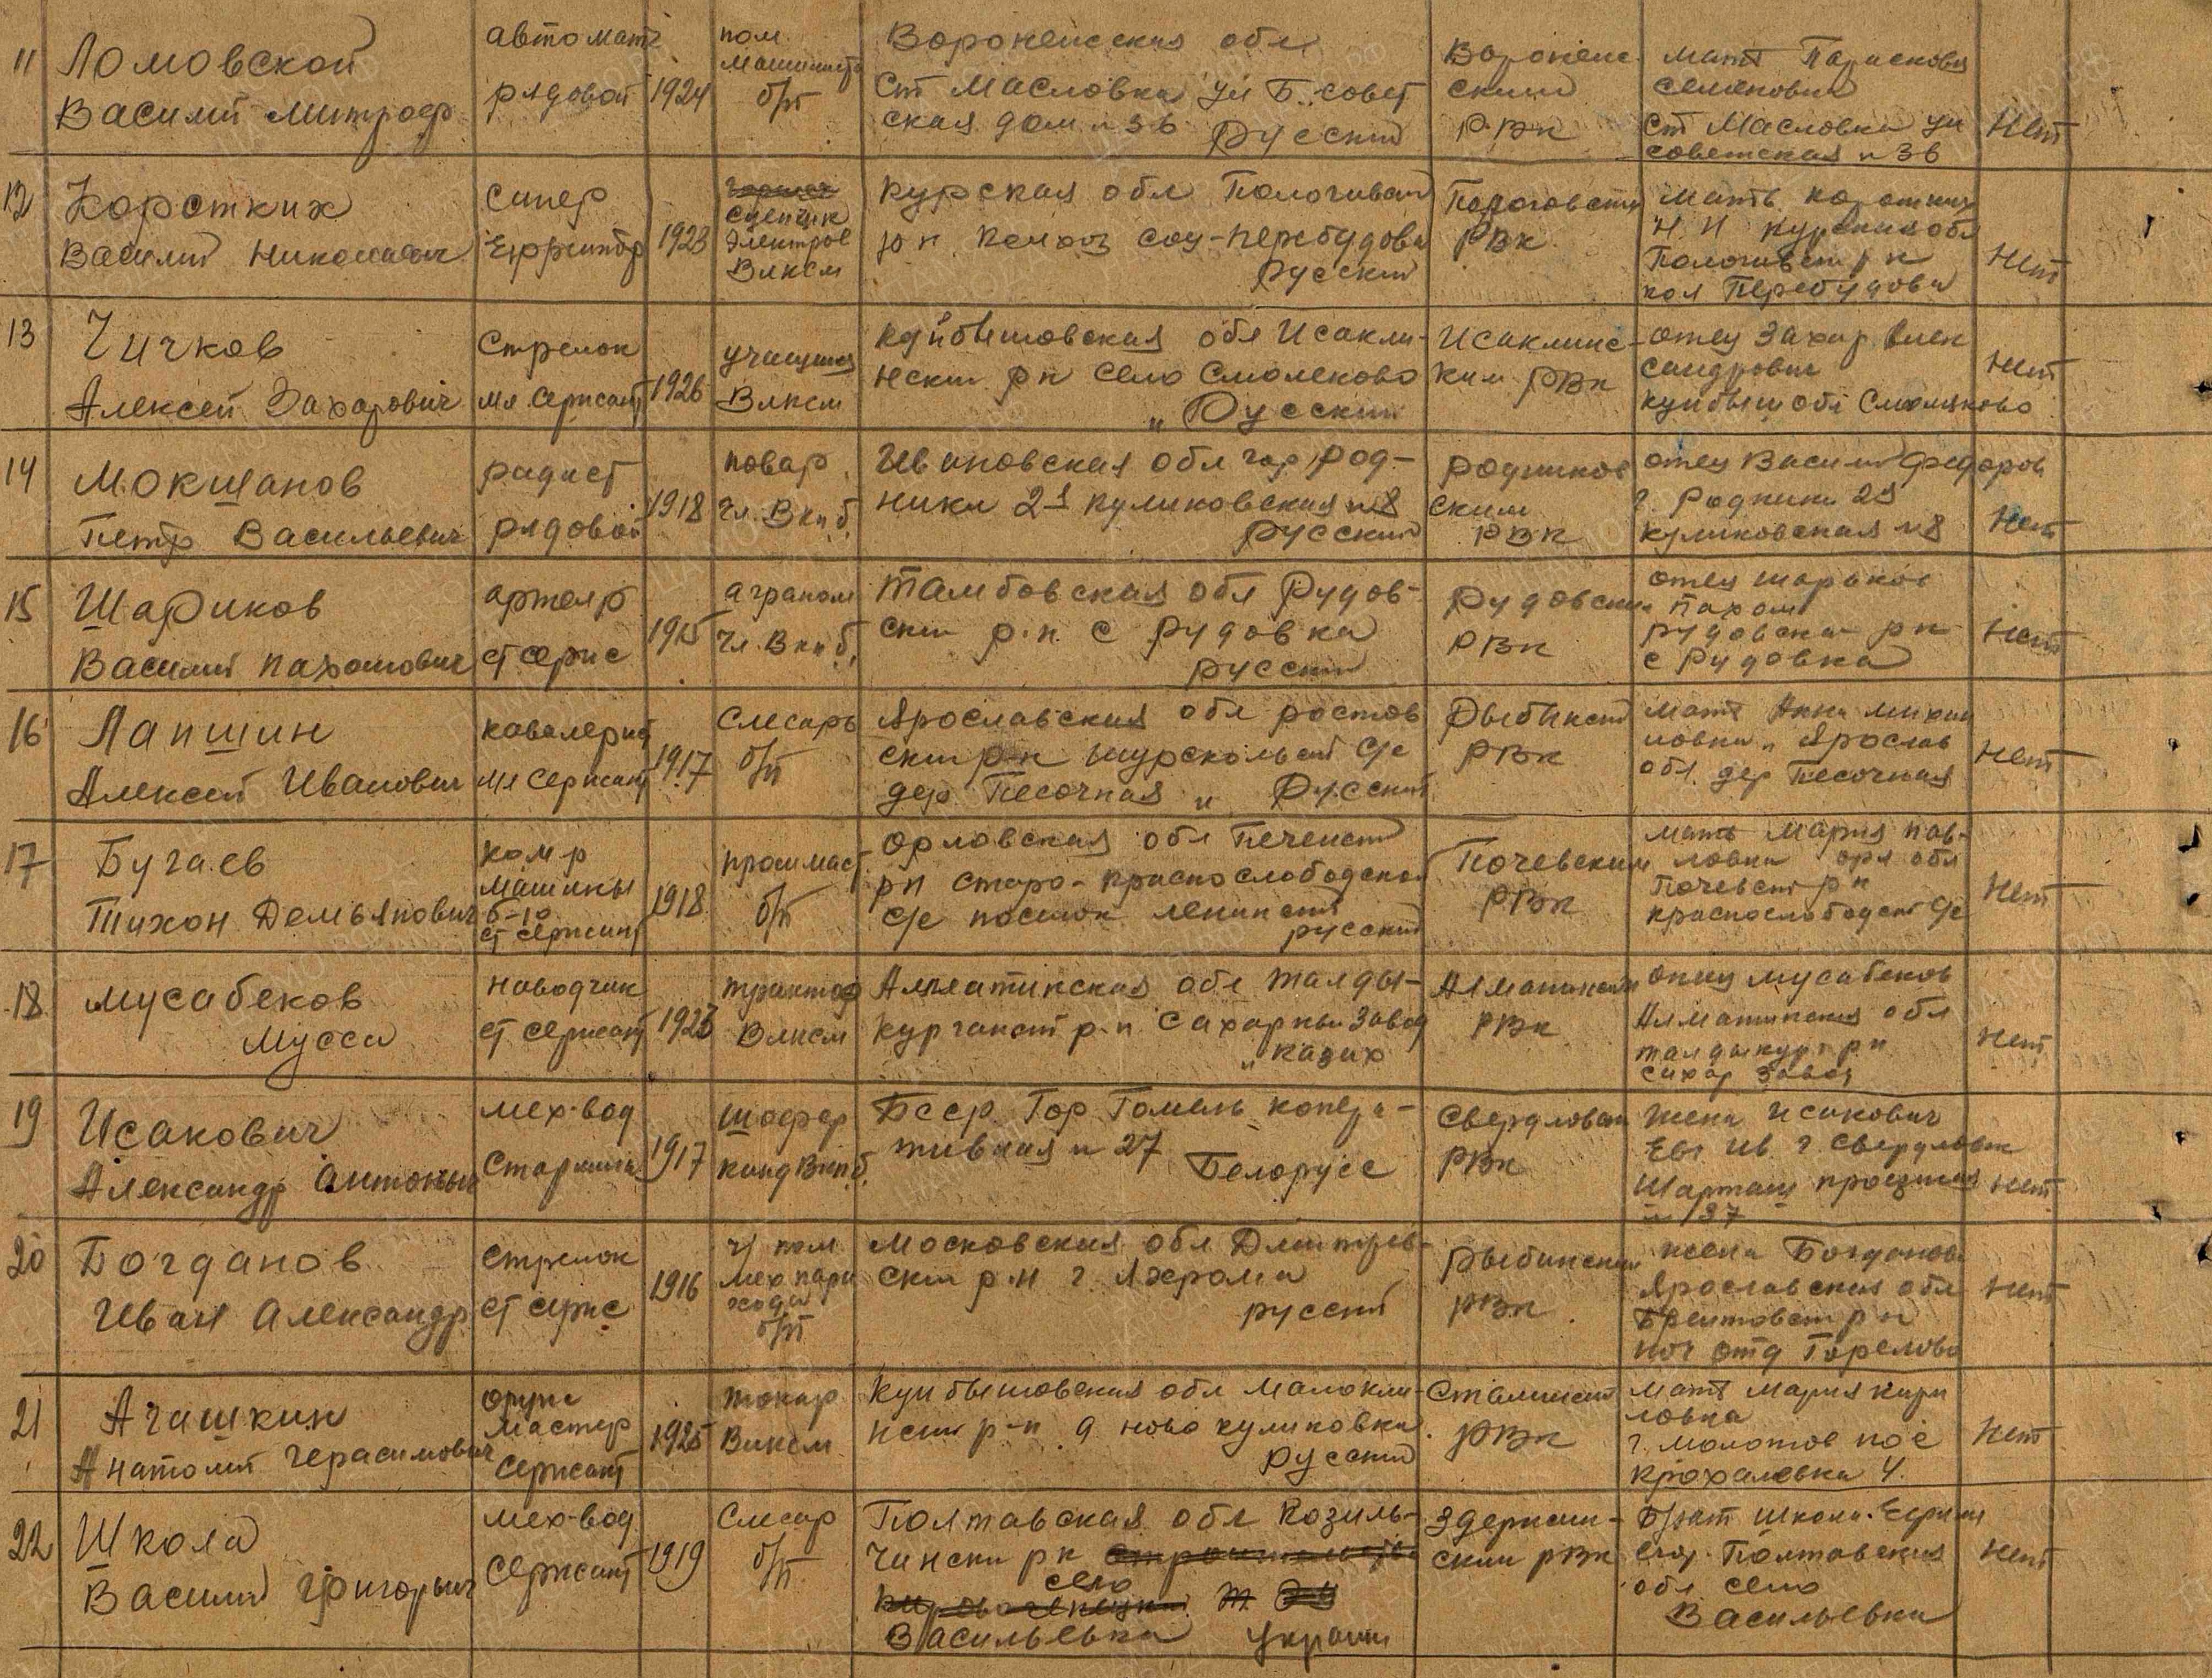 11 Ломовской
Василий Митроф
автомат
рядовой
1924
пом
машинист
б/п
Воронежская обл
ст Масловка ул Б. совет
ская дом н 36 Русский
Воронеж
ский
РВК
мать Парасковья
семеновна
ст Масловка ул
советская н 36
Нет
12 Коротких
Василий Николаевич
сапер
Ефрейтор
1923
сцепщик
электров
Влксм
Курская обл
р н колхоз соц-перебудова
Русский
РВК
мать коротких
Н. И Курская обл
р н
кол Перебудова
Нет
13 Чичков
Алексей Захарович
Стрелок
мл. сержант
1926
учащийся
Влксм
Куйбышовская обл Исакли-
нский р н село Смолеково
" Русский
Исаклинс-
ким РВК
отец Захар Алек
сандрович
куйбыш обл Смолеково
Нет
14 Мокшанов
Петр Васильевич
радист
рядовой
1918
повар
Чл. Вкпб
Ивановская обл гор Род-
ники 2я куликовская н 8
Русский
Родников
ским
РВК
отец Василий Федоров
г. Родники 2я
куликовская н 8
Нет
15 Шариков
Василий Пахомович
артелр
ст серж
1915
аграном
Чл. Вкпб
Тамбовская обл Рудов-
ский р.н. с Рудовка
русский
Рудовский
РВК
отец шариков
Пахом
Рудовский р н
с Рудовка
Нет
16 Лапшин
Алексей Иванович
кавалерист
мл сержант
1917
Слесарь
б/п
Ярославская обл ростов
ский р-н шурскольский с/с
дер Песочная " Русский
Рыбинский
РВК
мать Анна михай
ловна " Ярослав
обл. дер Песочная
Нет
17 Бугаев
Тихон Демьянович
ком-р
машины
б-10
ст сержант
1918
б/п
Орловская обл
р н старо-краснослободской
с/с поселок ленинский
русский
Почевский
РВК
мать Мария пав-
ловна орл обл
Почевский р н
краснослободский с/с
Нет
18 Мусабеков
Мусса
наводчик
ст сержант
1923
трактор
Влксм
Алматинская обл Талды-
курганский р.н. сахарный завод
" казах
Алматинский
РВК
отец мусабеков
Алматинская обл
талдыкург р н
сахар завод
Нет
19 Исакович
Александр Антоныч
мех-вод
Старшина
1917
шофер
канд Вкпб
Бсср. Гор Гомель копера-
тивная н 27
Белорусс
Свердловский
РВК
жена Исакович
Евг Ив г Свердловск
Шарташ проезжая
н 137
Нет
20 Богданов
Иван Александр
стрелок
ст серж
1916
пом
мех паро
хода
б/п
Московская обл Дмитров-
ский р.н г Яхрома
русский
Рыбинский
РВК
жена Богданова
Ярославская обл
Брейтовский р н
поч отд Горелово
Нет
21 Агашкин
Анатолий Герасимович
оруж
мастер
сержант
1925
токар
Влксм
Куйбышовская обл Малокли-
нский р-н д ново куликовка
Русский
Сталинский
РВК
мать мария кири
ловна
г. молотов пос
крохалевка 4.
Нет
22 Школа
Василий Григорьич
мех-вод
сержант
1919
Слесар
б/п
Полтавская обл Козиль-
чински р н
село
Васильевка украин
Здержин-
ским РВК
брат школа Ефрим
Полтавская
обл село
Васильевка
Нет